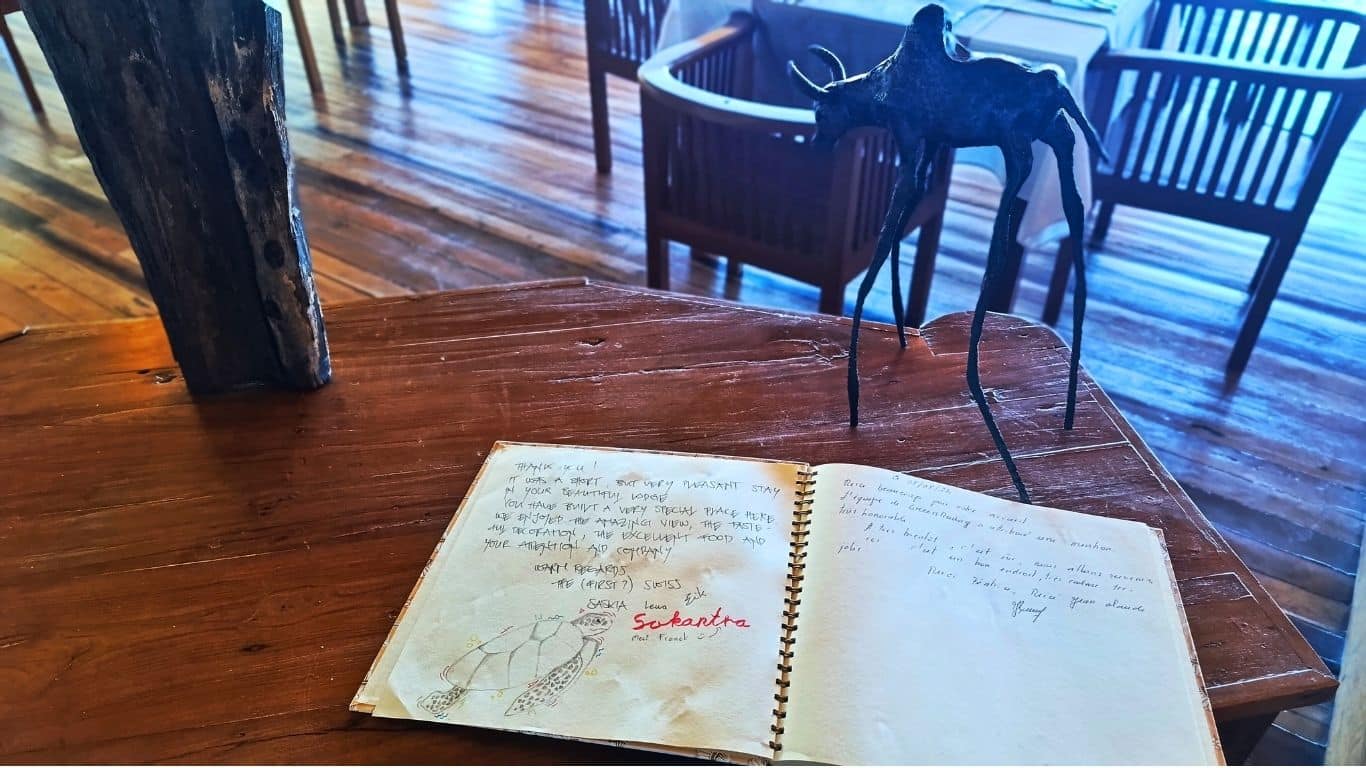 THANK YOU!
IT WAS A SHORT, BUT VERY PLEASANT STAY
IN YOUR BEAUTIFUL LODGE
YOU HAVE BUILT A VERY SPECIAL PLACE HERE
WE ENJOYED THE AMAZING VIEW, THE TASTE-
DECORATION, THE EXCELLENT FOOD AND
YOUR ATTENTION AND COMPANY
WARM REGARDS
THE (FIRST?) SWISS
SASKIA Erik
Sakantra
Merci beaucoup pour votre accueil
L'équipe de a
très honorable
A très bientôt, c'est sûr, nous allons revenir
ici c'est un bon endroit, très calme très
joli
Merci Merci Jean Claude